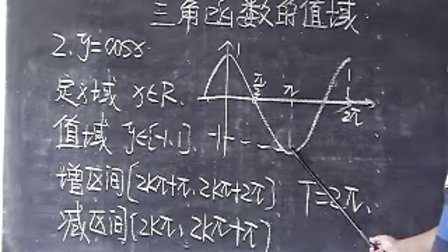 三角函数的值域
2. y=cosx
定义域 x∈R.
值域 y∈[-1,1].
增区间[2kπ+π,2kπ+2π]
减区间[2kπ,2kπ+π]
T=2π.
1
π/2
π
1
2π
-1